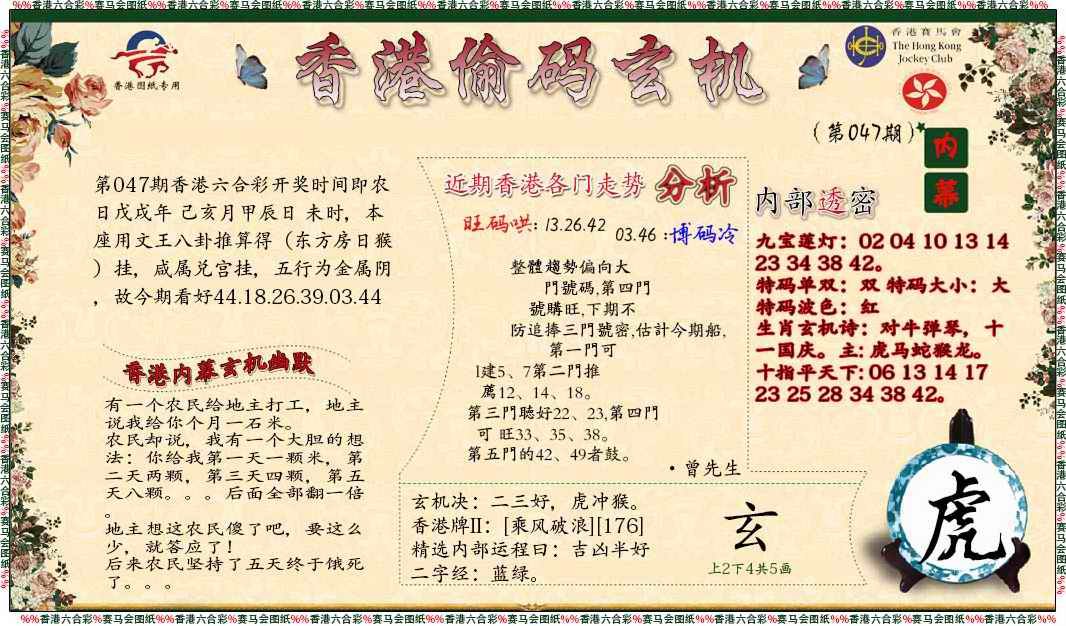 %%香港六合彩%赛马会图纸%%香港六合彩%赛马会图纸%%香港六合彩%赛马会图纸%%香港六合彩%赛马会图纸%%香港六合彩%赛马会图纸%%香港六合彩%赛马会图纸%%香港六合彩%%
香港图纸专用
香港偷码玄机
香港賽馬會
The Hong Kong
Jockey Club
(第047期)
内
幕
第047期香港六合彩开奖时间即农
日戊戌年 己亥月甲辰日 未时，本
座用文王八卦推算得（东方房日猴
）挂，咸属兑宫挂，五行为金属阴
，故今期看好44.18.26.39.03.44
香港内幕玄机幽默
有一个农民给地主打工，地主
说我给你个月一石米。
农民却说，我有一个大胆的想
法：你给我第一天一颗米，第
二天两颗，第三天四颗，第五
天八颗。。。后面全部翻一倍
。
地主想这农民傻了吧，要这么
少，就答应了！
后来农民坚持了五天终于饿死
了。。。
近期香港各门走势 分析
旺码哄: 13.26.42
03.46 :博码冷
整體趨勢偏向大
門號碼,第四門
號購旺,下期不
防追捧三門號密,估計今期船,
第一門可
1建5、7第二門推
薦12、14、18。
第三門聴好22、23,第四門
可 旺33、35、38。
第五門的42、49者鼓。
·曾先生
玄机决：二三好，虎冲猴。
香港牌II：[乘风破浪][176]
精选内部运程日：吉凶半好
二字经：蓝绿。
玄
上2下4共5画
内部透密
九宝莲灯：02 04 10 13 14
23 34 38 42。
特码单双：双 特码大小：大
特码波色：红
生肖玄机诗：对牛弹琴，十
一国庆。主: 虎马蛇猴龙。
十指平天下: 06 13 14 17
23 25 28 34 38 42。
虎
%%香港六合彩%赛马会图纸%%香港六合彩%赛马会图纸%%香港六合彩%赛马会图纸%%香港六合彩%赛马会图纸%%香港六合彩%赛马会图纸%%香港六合彩%赛马会图纸%%香港六合彩%%